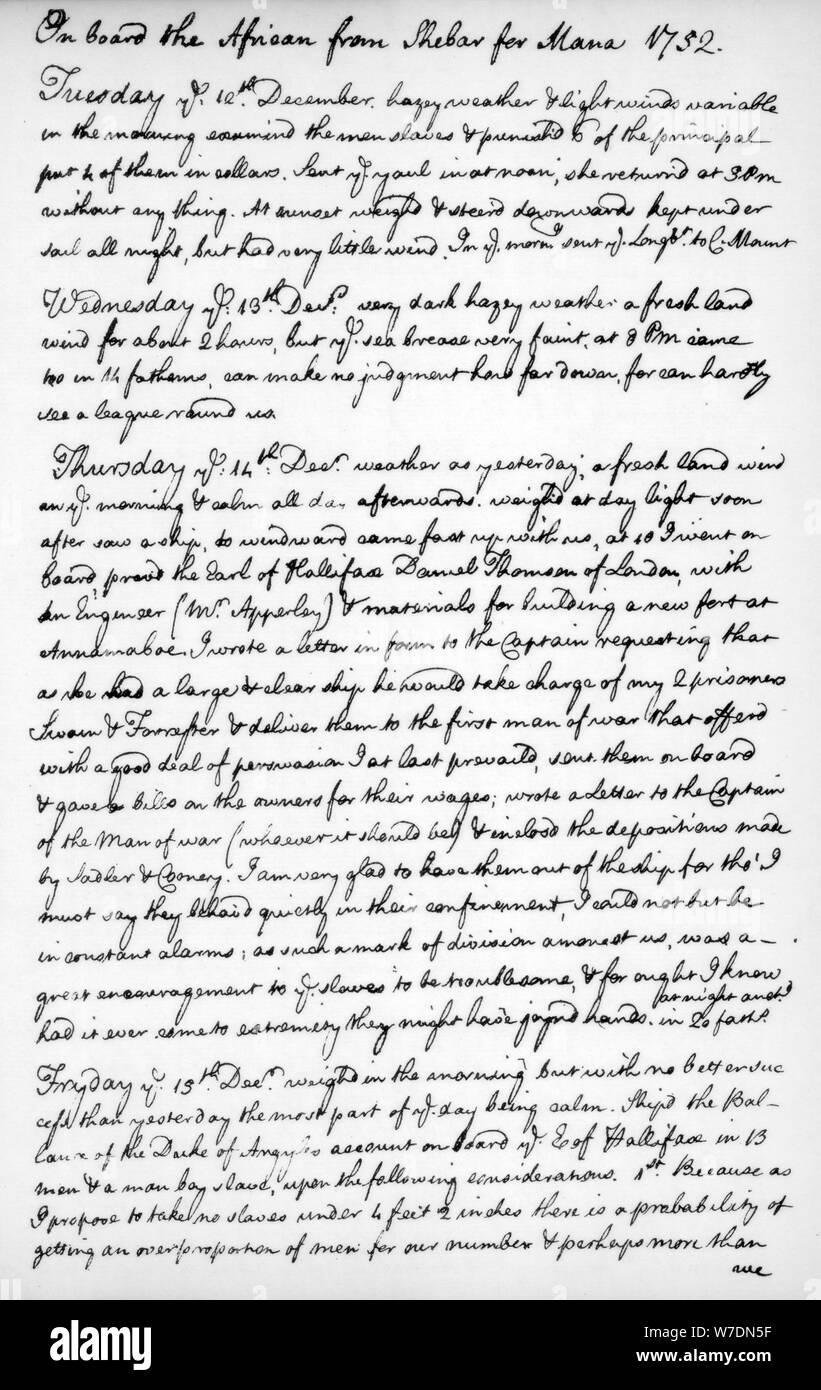 On board the African from Shebar for Mana 1752.
Tuesday ye. 12th. December. hazey weather & light winds variable
in the morning examind the men slaves & punish'd 6 of the principal
put 4 of them in collars. Sent ye. yaul in at noon, she return'd at 3 Pm
without any thing. At sunset weigh'd & steerd downwards kept under
sail all night, but had very little wind. In ye. morng. sent ye. Longbt. to C. Mount
Wednesday ye. 13th. Decr. very dark hazey weather a fresh land
wind for about 2 hours, but ye. sea brease very faint, at 8 Pm came
too in 14 fathoms, can make no judgment how far down, for can hardly
see a league round us.
Thursday ye. 14th. Decr. weather as yesterday, a fresh land wind
in ye. morning & calm all day afterwards. weigh'd at day light soon
after saw a ship, to windward came fast up with us, at 10 I went on
board, prov'd the Earl of Hallifax Daniel Thomson of London, with
an Engineer (Mr. Apperley) & materials for building a new fort at
Annamaboe, I wrote a letter in form to the Captain requesting that
as he had a large & clear ship he would take charge of my 2 prisoners
Swain & Forrester & deliver them to the first man of war that offerd
with a good deal of perswasion I at last prevaild, sent them on board
& gave bills on the owners for their wages; wrote a Letter to the Captain
of the Man of war (whoever it should be) & inclosd the depositions made
by Sadler & Cooney. I am very glad to have them out of the ship for tho' I
must say they behav'd quietly in their confinement, I could not but be
in constant alarms; as such a mark of division amongst us, was a
great encouragement to ye. slaves to be troublesome, & for ought I know
had it ever come to extremety they might have joynd hands. at night anchd. in 20 faths.
Fryday ye. 15th. Decr. weigh'd in the morning but with no better suc
cess than yesterday the most part of ye. day being calm. Ship'd the Bal-
lance of the Duke of Argyles account on board ye. E of Hallifax in 13
men & a man boy slave, upon the following considerations. 1st. Because as
I propose to take no slaves under 4 feet 2 inches there is a probability of
getting an overproportion of men for our number & perhaps more than
we
alamy
www.alamy.com
W7DN5F